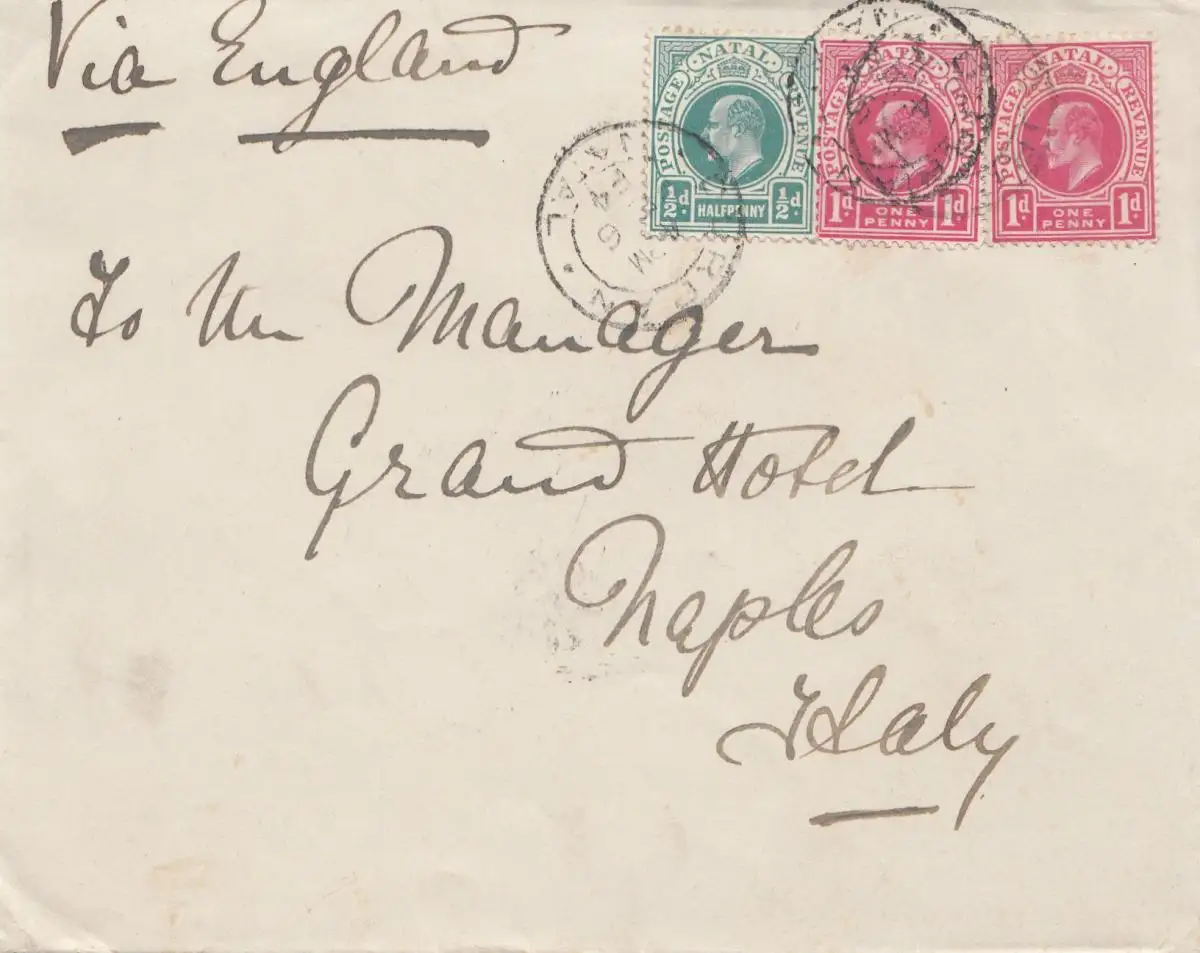 Via England
NATAL
POSTAGE
REVENUE
½d. HALFPENNY ½d.
NATAL
POSTAGE
1d ONE PENNY 1d
NATAL
POSTAGE
REVENUE
1d ONE PENNY 1d
NATAL
To the Manager
Grand Hotel
Naples
Italy